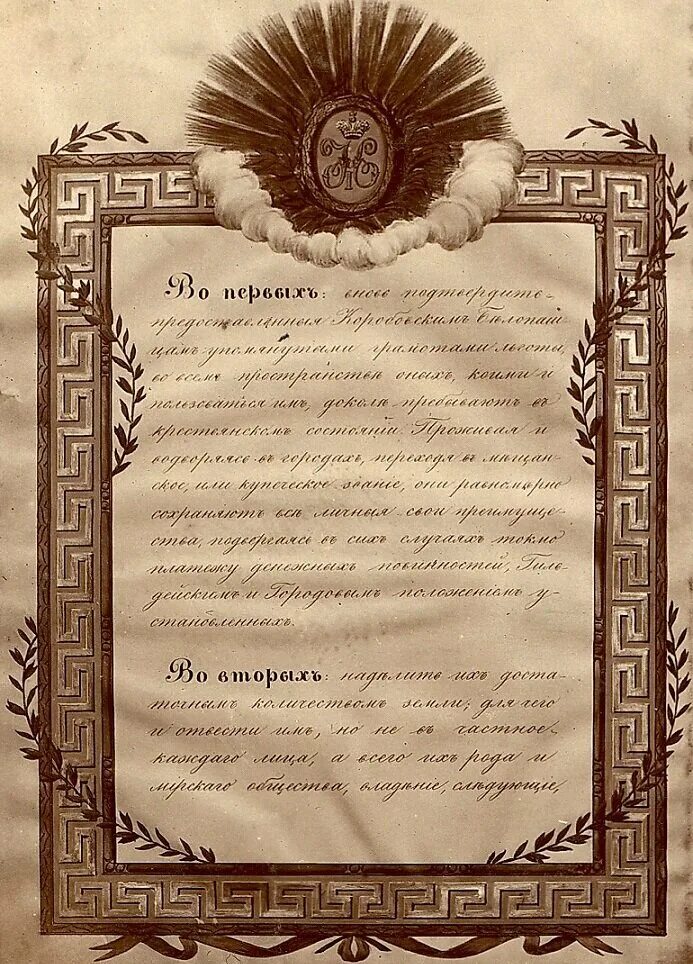 Во первыхъ: вновь подтвердить
предоставленныя Коробовскимъ Бѣлопаш-
цамъ упомянутыми грамотами льготы,
во всемъ пространствѣ оныхъ, коими и
пользоваться имъ, доколѣ пребываютъ въ
крестьянскомъ состояніи. Проживая и
водворяясь въ городахъ, переходя въ мѣщан-
ское, или купеческое званіе, они равномѣрно
сохраняютъ всѣ личныя свои преимуще-
ства, подвергаясь въ сихъ случаяхъ токмо
платежу денежныхъ повинностей, Гиль-
дейскимъ и Городовымъ положеніемъ у-
становленныхъ.
Во вторыхъ: надѣлить ихъ доста-
точнымъ количествомъ земли; для чего
и отвести имъ, но не въ частное
каждаго лица, а всего ихъ рода и
мірскаго общества, владѣніе, слѣдующіе,